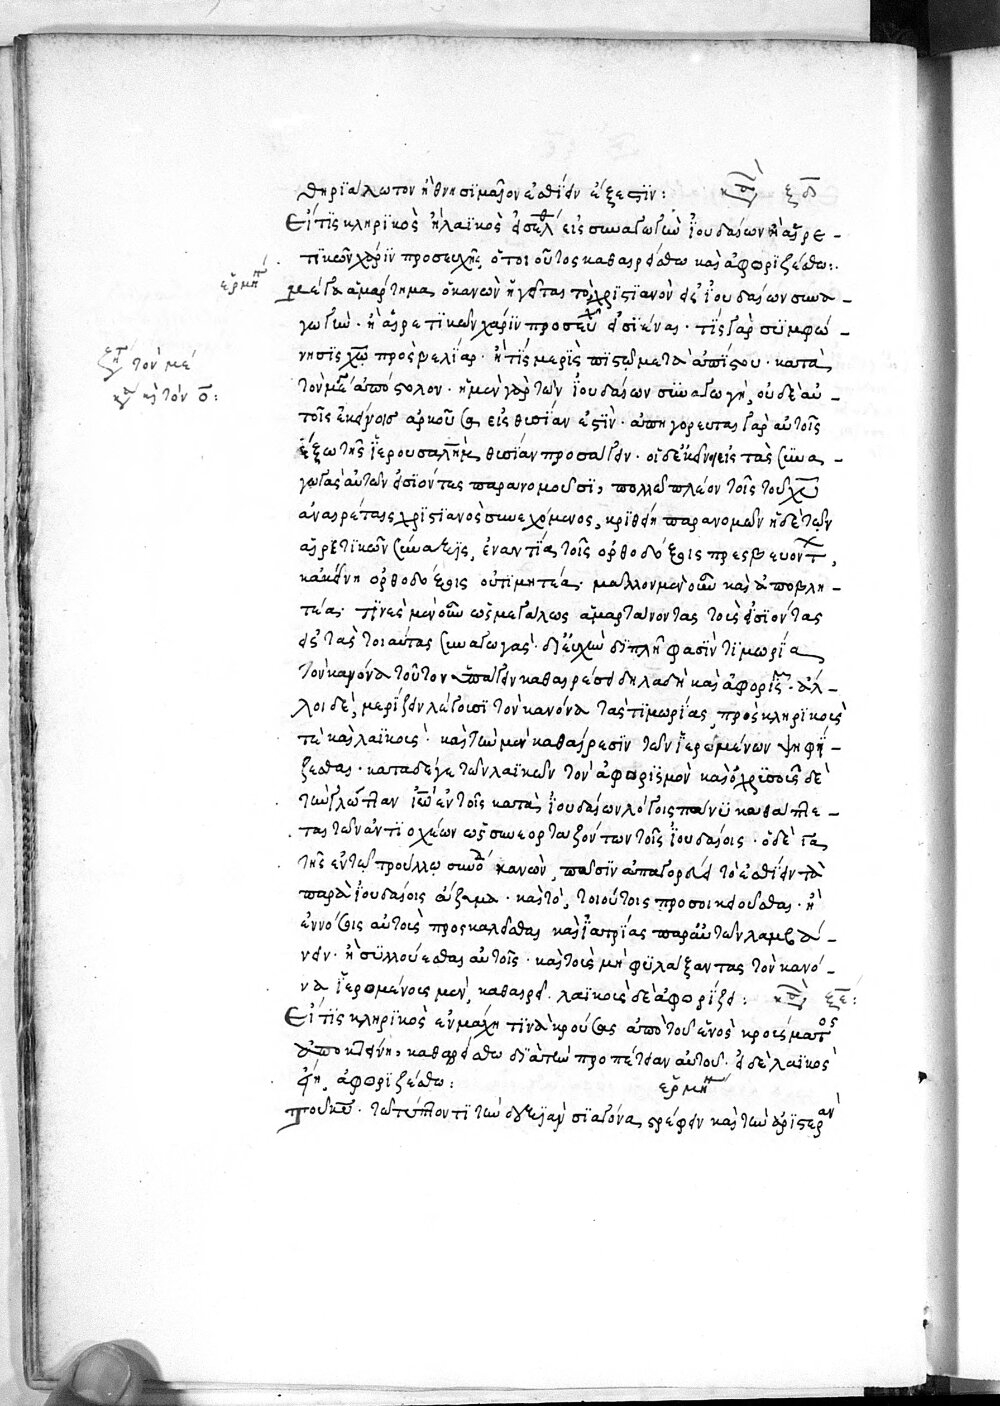 θηριάλωτον ἢ θνησιμαῖον ἐσθίειν ἔξεστιν: κανὼν ξδ
Εἴ τις κληρικὸς ἢ λαϊκὸς εἰσέλθῃ εἰς συναγωγὴν ἰουδαίων ἢ αἱρε-
τικῶν χάριν προσευχῆς ὁ τοιοῦτος καθαιρείσθω καὶ ἀφοριζέσθω:
ἑρμην
μέγα ἁμάρτημα ὁ κανὼν ἡγεῖται τὸ χριστιανὸν εἰς ἰουδαίων συνα-
γωγὴν· ἢ αἱρετικῶν χάριν προσευχ εἰσϊέναι· τίς γὰρ συμφώ-
ζητ τὸν με
καὶ κ τὸν ο:
νησις χω πρὸς βελίαρ· ἢ τίς μερὶς πιστῷ μετὰ ἀπίστου· κατὰ
τὸν μεγ ἀπόστολον· ἡ μὲν γὰρ τῶν ἰουδαίων συναγωγὴ, οὐδὲ αὐ-
τοῖς ἐκείνοις ἀρκοῦσα εἰς θυσίαν ἐστὶν· ἀπηγόρευται γὰρ αὐτοῖς
ἔξω τῆς ἱερουσαλὴμ θυσίαν προσάγειν· οἱ δὲ κἀκεῖνοι εἰς τὰς συνα-
γωγὰς αὐτῶν εἰσϊόντες παρανομοῦσι, πολλῷ πλέον τοῖς τοῦ χυ
ἀναιρέταις χριστιανὸς συνευχόμενος, κριθείη παρανομῶν ἡ δὲ τῶν
αἱρετικῶν σύναξις, ἐναντία τοῖς ὀρθοδόξοις πρεσβεύοντ,
κἀκείνη ὀρθοδόξοις οὐ τιμητέα· μᾶλλον μὲν οὖν καὶ ἀποβλη-
τέα· τινὲς μὲν οὖν ὡς μεγάλως ἁμαρτάνοντας τοὺς εἰσϊόντας
εἰς τὰς τοιαύτας συναγωγὰς· διπλῇ φασὶν τιμωρίᾳ
τὸν κανόνα τοῦτον ὑπάγειν καθαιρέσει δηλαδὴ καὶ ἀφορισμ· ἄλ-
λοι δὲ, μερίζειν λέγουσι τὸν κανόνα τὰς τιμωρίας, πρὸς κληρικοὺς
τὲ καὶ λαϊκοὺς· καὶ τὴν μὲν καθαίρεσιν τῶν ἱερωμένων ψηφί-
ζεσθαι· κατὰ δέ γε τῶν λαϊκῶν τὸν ἀφορισμὸν καὶ ὁ χρυσοῦς δὲ
τὴν γλῶτταν ἰω ἐν τοῖς κατὰ ἰουδαίων λόγοις πάνυ καθάπτε-
ται τῶν ἀντιοχέων ὡς συνεορταζόντων τοῖς ἰουδαίοις· ὁ δὲ ια
τῆς ἐν τῷ τρούλλῳ συνόδ κανὼν, πᾶσιν ἀπαγορεύει τὸ ἐσθίειν τὰ
παρὰ ἰουδαίοις ἄζυμα· καὶ τὸ, τοιούτοις προσοικειοῦσθαι· ἢ
ἐν νόσοις αὐτοὺς προσκαλεῖσθαι καὶ ἰατρείας παρ' αὐτῶν λαμβά-
νειν· ἢ συλλούεσθαι αὐτοῖς· καὶ τοὺς μὴ φυλάξαντας τὸν κανό-
να ἱερωμένους μὲν, καθαιρεῖ· λαϊκοὺς δὲ ἀφορίζει: κανὼν ξε:
Εἴ τις κληρικὸς ἐν μάχῃ τινὰ κρούσας ἀπὸ τοῦ ἑνὸς κρούσματος
ἀποκτείνῃ, καθαιρείσθω διὰ τὴν προπέτειαν αὐτοῦ· εἰ δὲ λαϊκὸς
εἴη, ἀφοριζέσθω: ἑρμην
Τοῦ κυ· τῷ τύπτοντι τὴν δεξιὰν σιαγόνα, στρέφειν καὶ τὴν ἀριστερὰν